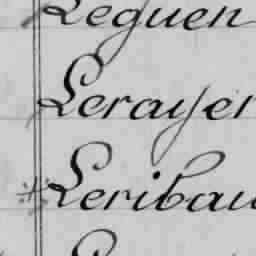 Leguen
Lerayer
Leribau